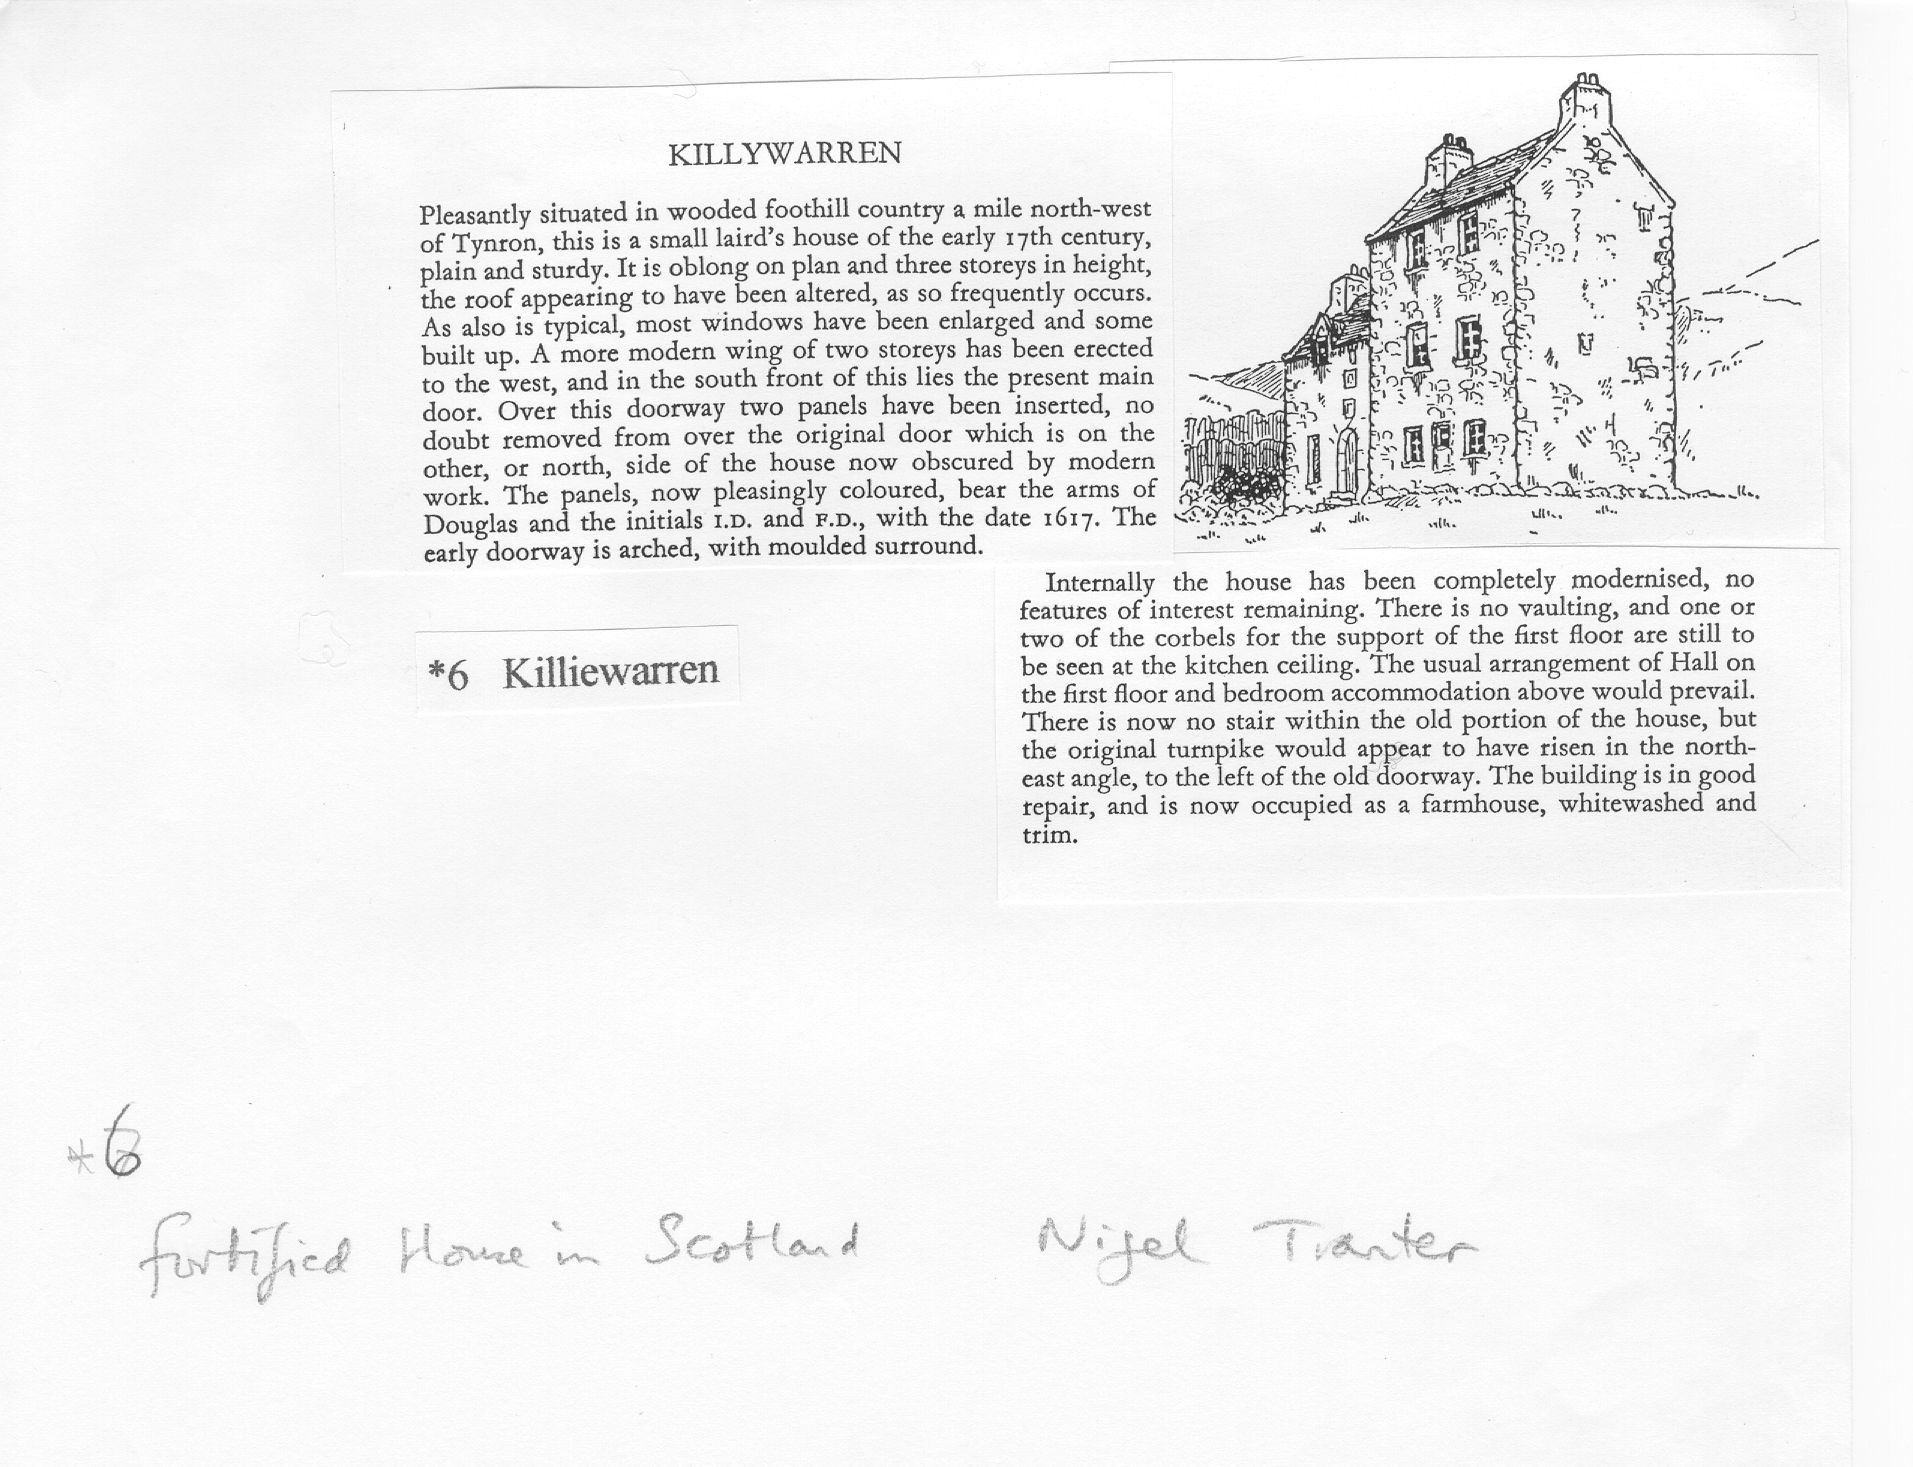 KILLYWARREN
Pleasantly situated in wooded foothill country a mile north-west
of Tynron, this is a small laird's house of the early 17th century,
plain and sturdy. It is oblong on plan and three storeys in height,
the roof appearing to have been altered, as so frequently occurs.
As also is typical, most windows have been enlarged and some
built up. A more modern wing of two storeys has been erected
to the west, and in the south front of this lies the present main
door. Over this doorway two panels have been inserted, no
doubt removed from over the original door which is on the
other, or north, side of the house now obscured by modern
work. The panels, now pleasingly coloured, bear the arms of
Douglas and the initials I.D. and F.D., with the date 1617. The
early doorway is arched, with moulded surround.
Internally the house has been completely modernised, no
features of interest remaining. There is no vaulting, and one or
two of the corbels for the support of the first floor are still to
be seen at the kitchen ceiling. The usual arrangement of Hall on
the first floor and bedroom accommodation above would prevail.
There is now no stair within the old portion of the house, but
the original turnpike would appear to have risen in the north-
east angle, to the left of the old doorway. The building is in good
repair, and is now occupied as a farmhouse, whitewashed and
trim.
*6 Killiewarren
*6
fortified House in Scotland Nigel Tranter